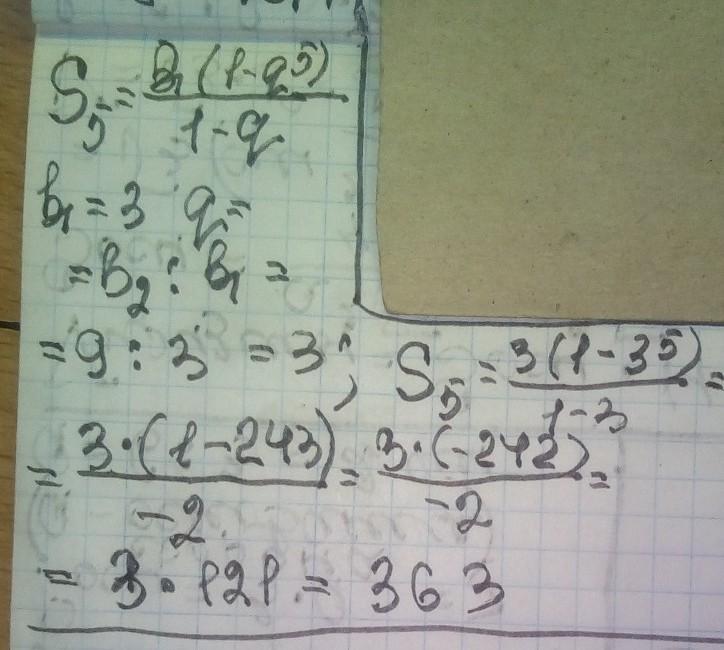 S₅ = b₁(1-q⁵) / 1-q
b₁ = 3 q =
= b₂ : b₁ =
= 9 : 3 = 3; S₅ = 3(1-3⁵) / 1-3 =
= 3·(1-243) / -2 = 3·(-242) / -2 =
= 3·121 = 363